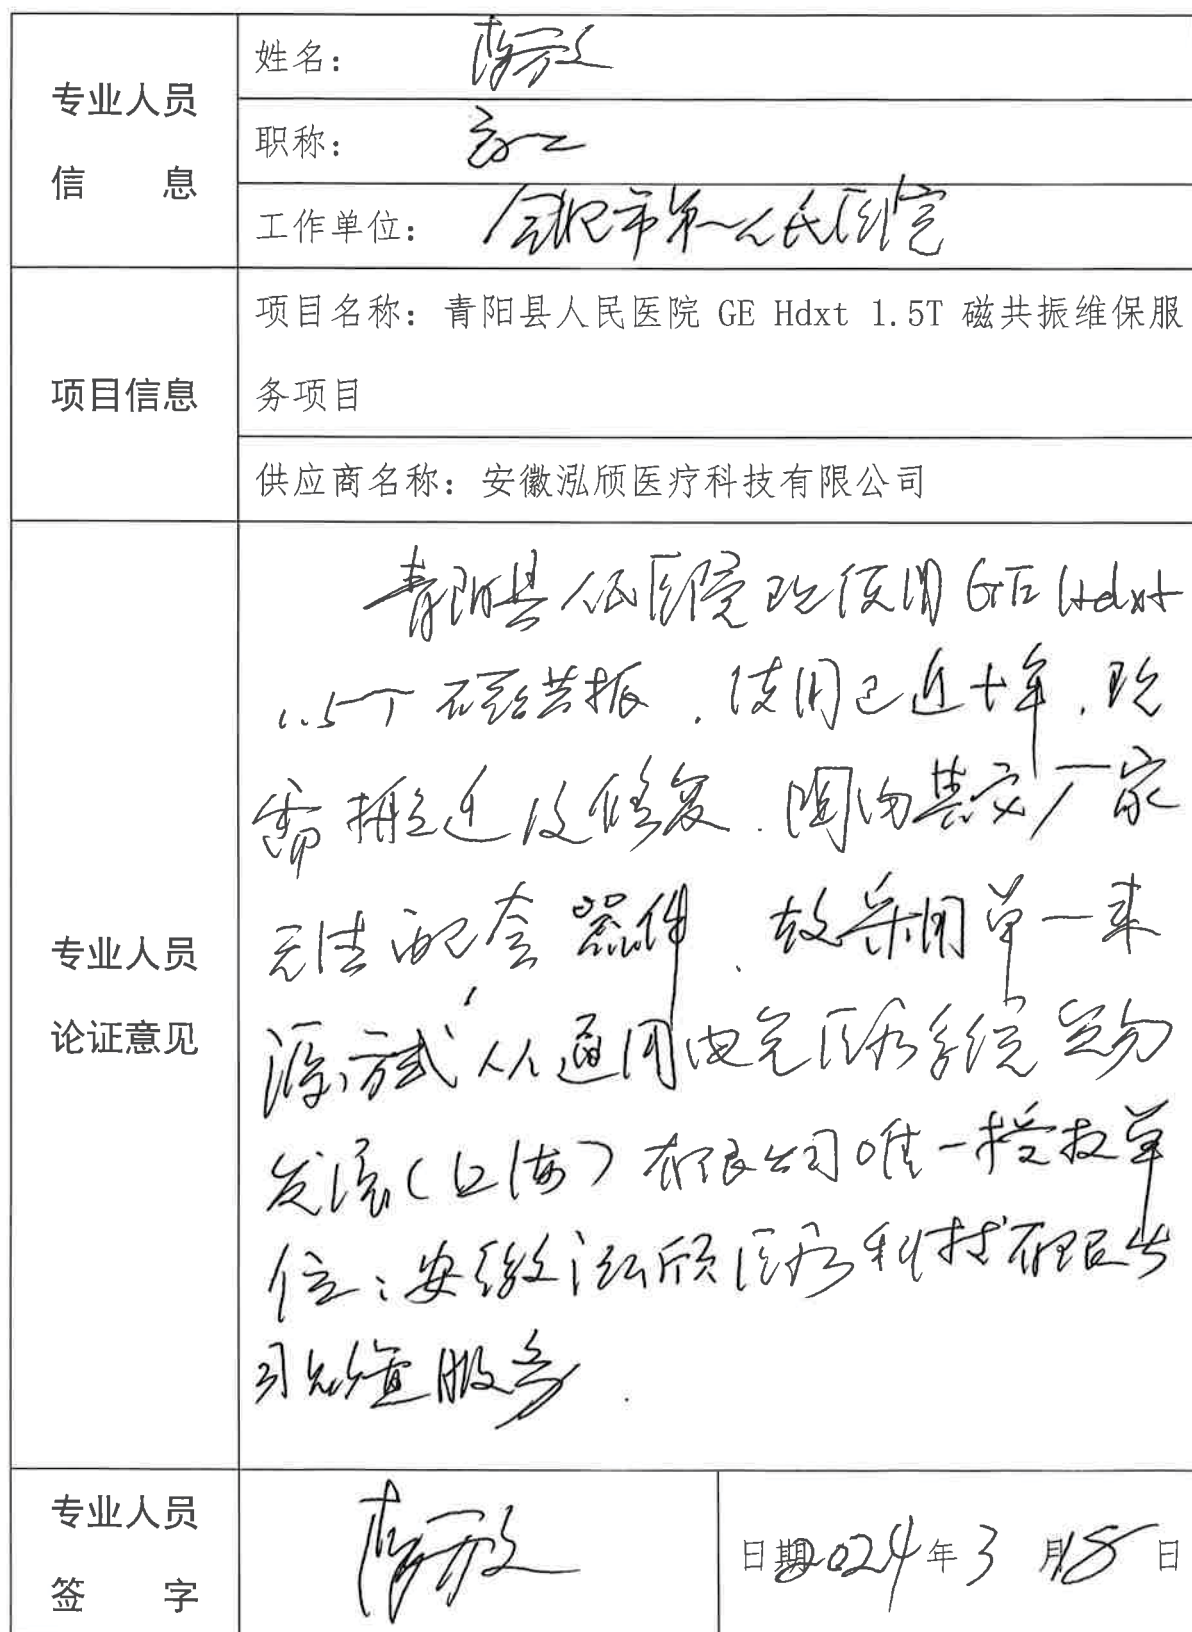 专业人员
信 息
姓名：
职称：高工
工作单位：合肥市第一人民医院
项目信息
项目名称：青阳县人民医院 GE Hdxt 1.5T 磁共振维保服
务项目
供应商名称：安徽泓颀医疗科技有限公司
专业人员
论证意见
青阳县人民医院现使用GE Hdxt
1.5T 磁共振，使用已近十年，现
需搬迁及修复．因为其它厂家
无法配套器件、故采用单一来
源方式，从通用电气医疗系统贸易
发展（上海）有限公司唯一授权单
位：安徽泓颀医疗科技有限公
司 服务．
专业人员
签 字
日期2024年3月18日